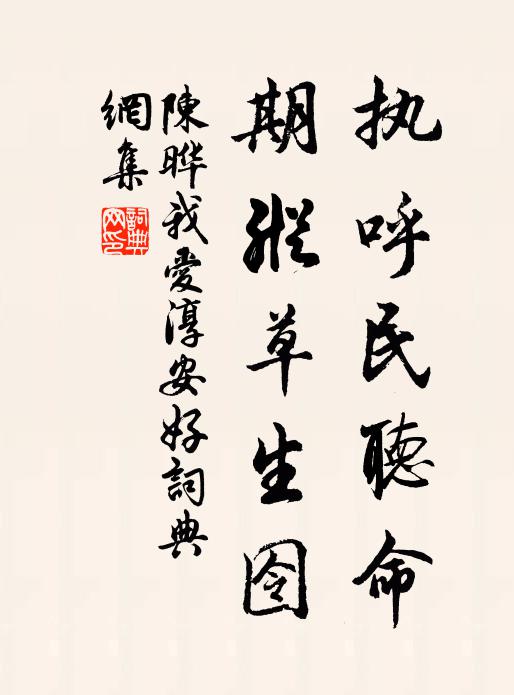 执呼民聽命
期縱草生囹
陳晔我愛淳安好詞典
網集
詞典
网印